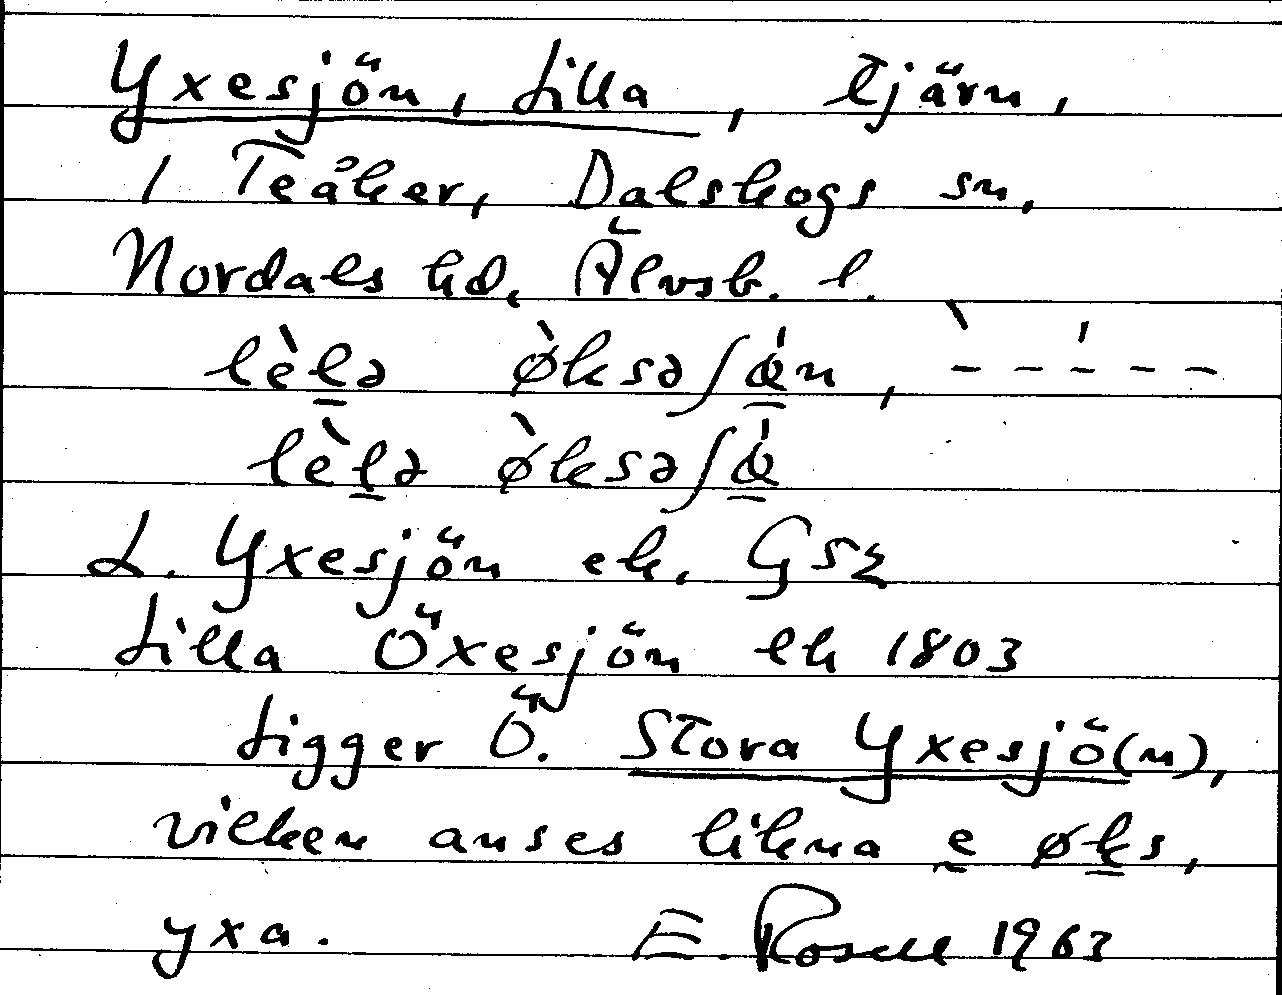 Yxesjön, Lilla, tjärn,
i Teåker, Dalskogs sn,
Nordals hd, Älvsb. l.
lè̱lə ø̀ksəʃǿ̱n, `- - -́ - -
lè̱lə ø̀ksəʃǿ̱
L. Yxesjön ek. GSz
Lilla Öxesjön lk 1803
Ligger Ö. Stora Yxesjö(n),
vilken anses likna e øks,
yxa. E. Rosell 1963